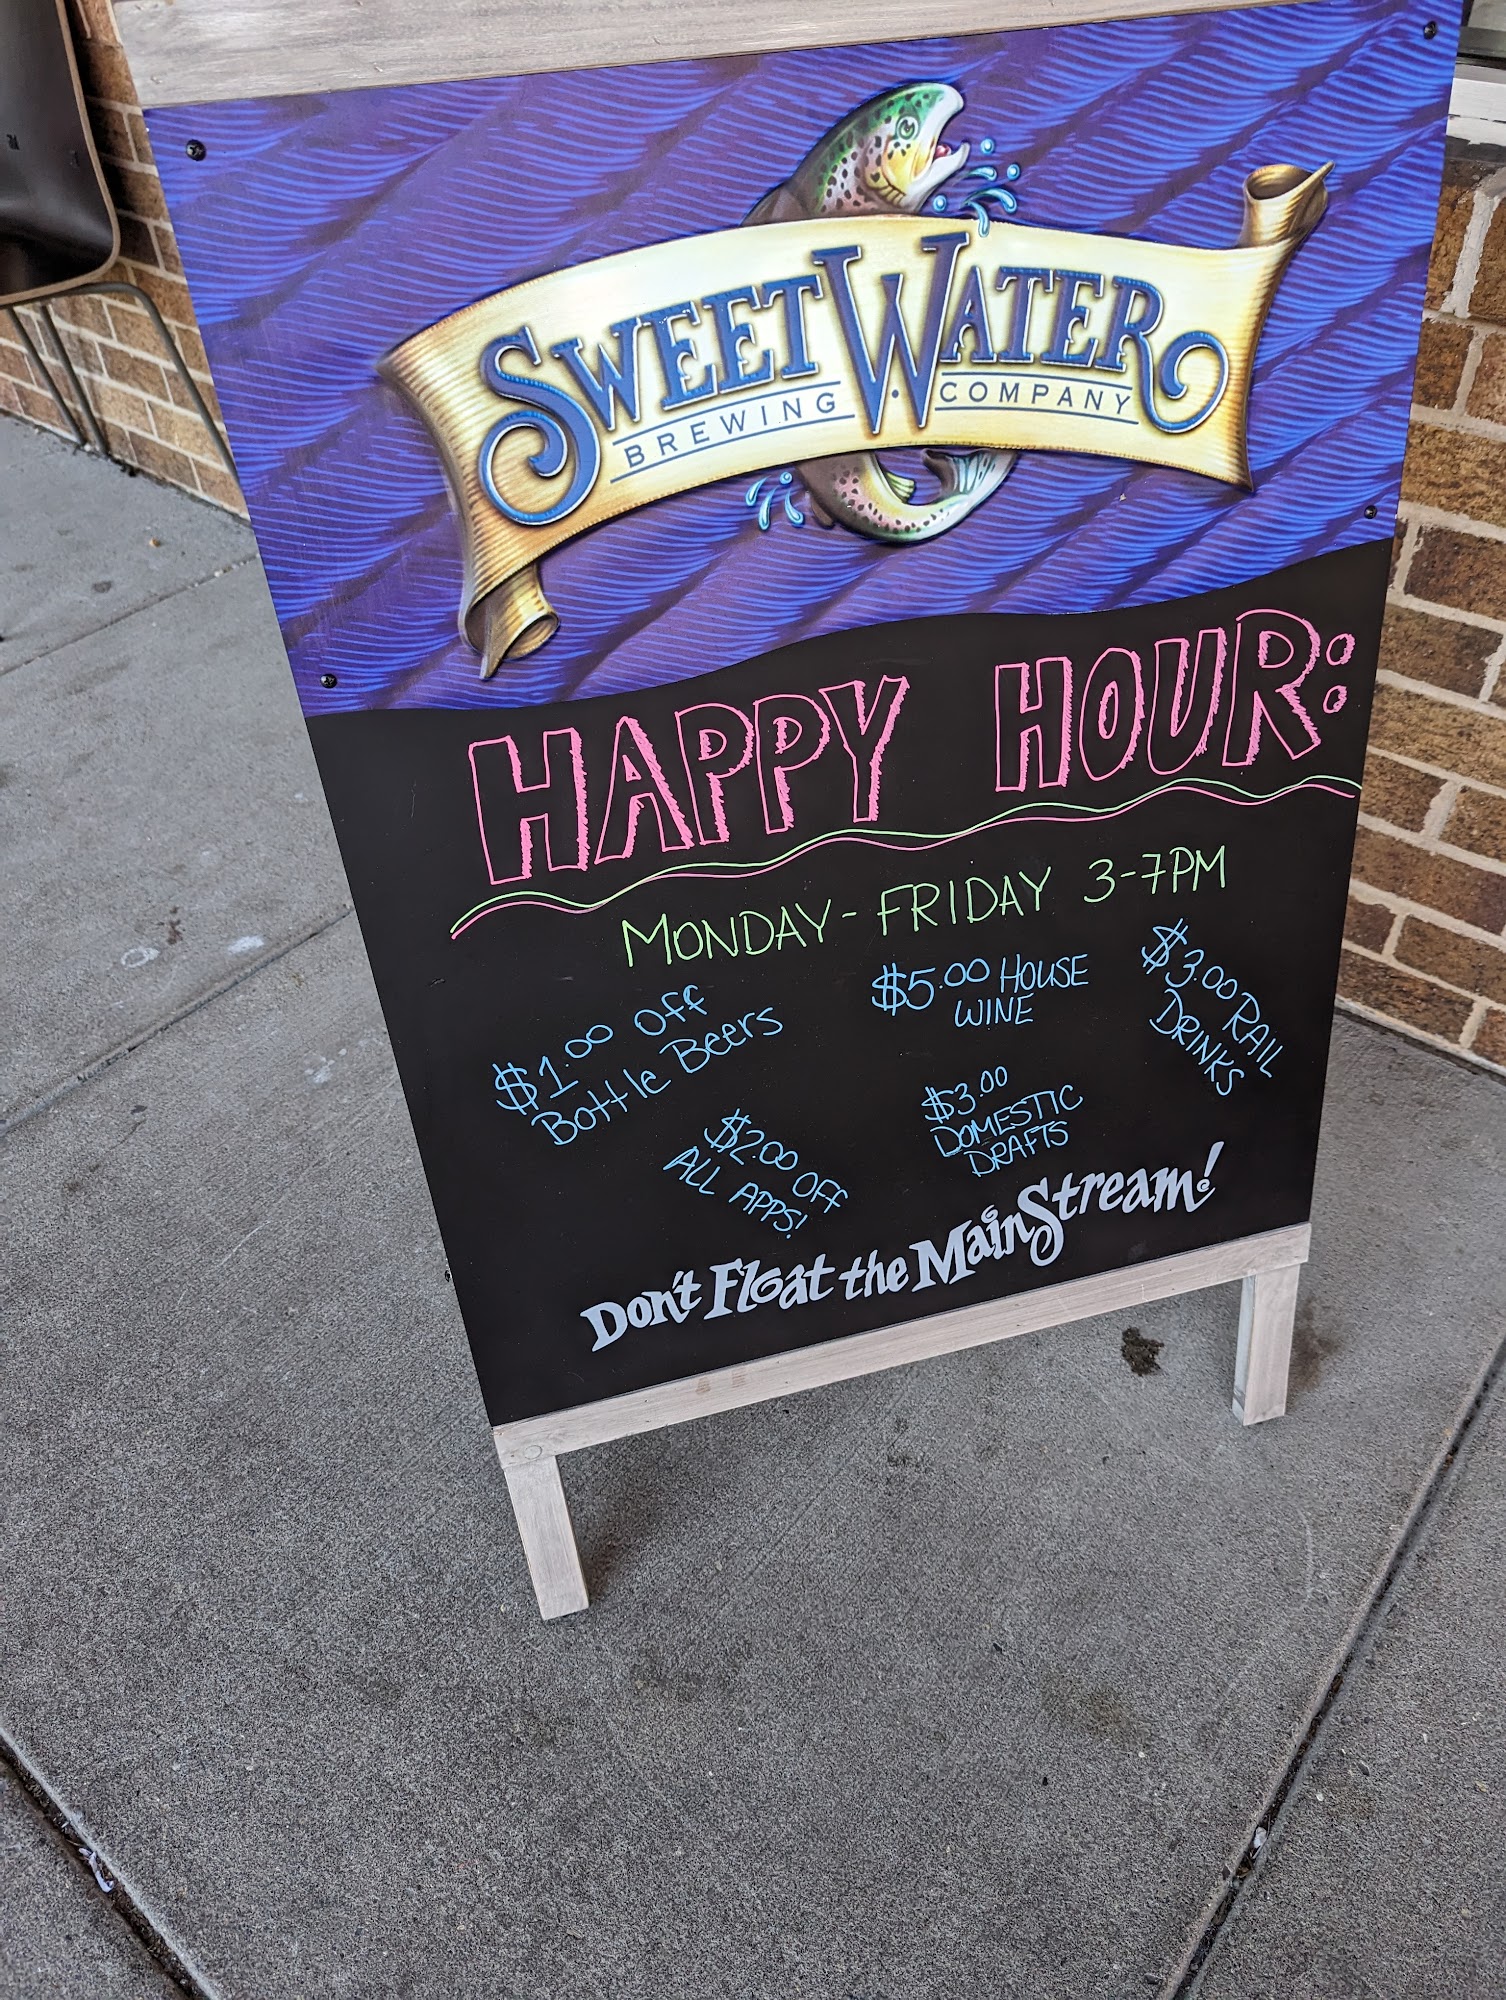 SWEETWATER
BREWING COMPANY
HAPPY HOUR:
MONDAY-FRIDAY 3-7PM
$1.00 Off
Bottle Beers
$5.00 HOUSE
WINE
$3.00 RAIL
DRINKS
$2.00 OFF
ALL APPS!
$3.00
DOMESTIC
DRAFTS
Don't Float the MainStream!